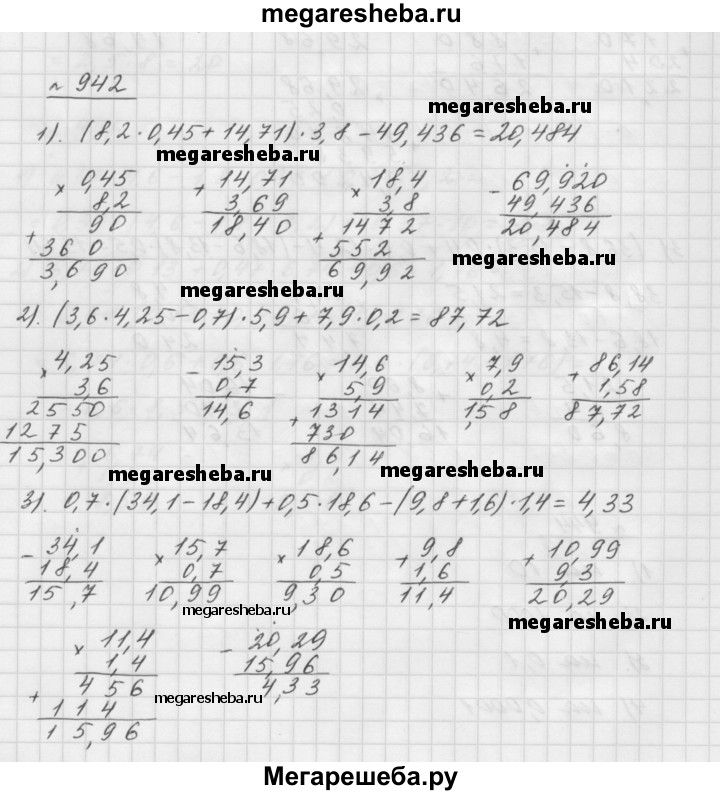 megaresheba.ru
№ 942
megaresheba.ru
1). (8,2 · 0,45 + 14,71) · 3,8 − 49,436 = 20,484
megaresheba.ru
× 0,45 + 14,71 × 18,4 − 69,920
8,2 3,69 3,8 49,436
90 18,40 1472 20,484
+ 360 + 552
3,690 69,92
megaresheba.ru
megaresheba.ru
2). (3,6 · 4,25 − 0,7) · 5,9 + 7,9 · 0,2 = 87,72
× 4,25 − 15,3 × 14,6 × 7,9 + 86,14
3,6 0,7 5,9 0,2 1,58
2550 14,6 + 1314 1,58 87,72
1275 730
15,300 86,14
megaresheba.ru megaresheba.ru
3). 0,7 · (34,1 − 18,4) + 0,5 · 18,6 − (9,8 + 1,6) · 1,4 = 4,33
− 34,1 × 15,7 × 18,6 + 9,8 + 10,99
18,4 0,7 0,5 1,6 9,3
15,7 10,99 9,30 11,4 20,29
megaresheba.ru
megaresheba.ru
× 11,4 − 20,29
1,4 15,96
+ 456 4,33
114
15,96
megaresheba.ru
megaresheba.ru
Мегарешеба.ру